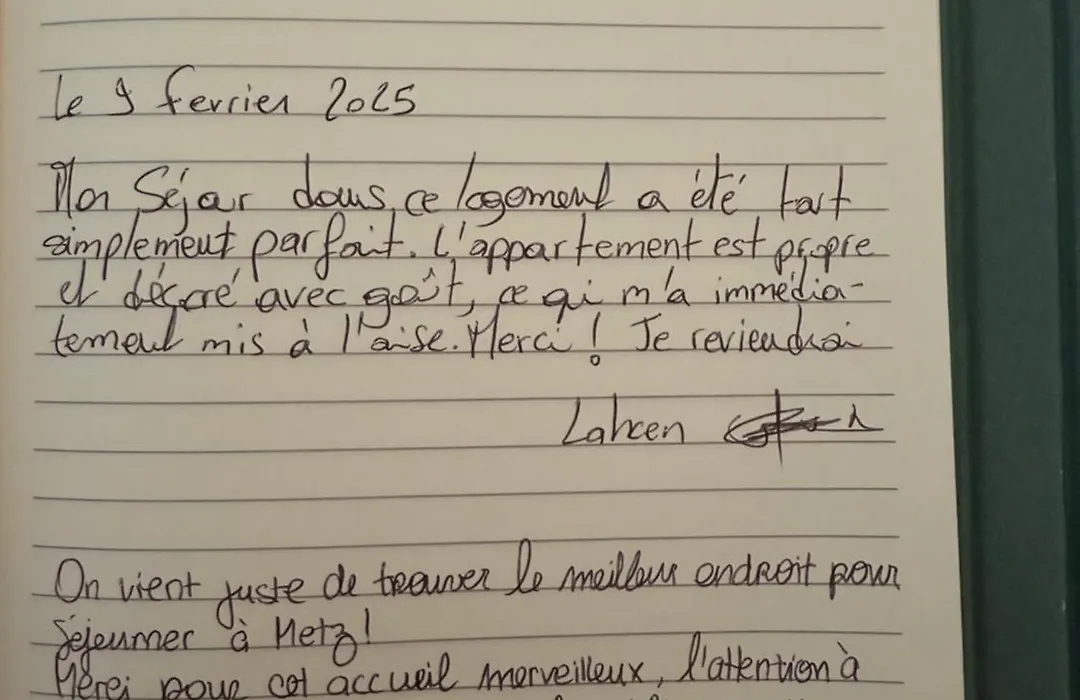 le 9 fevrier 2025
Mon Séjour dans ce logement a été tout
simplement parfait. L'appartement est propre
et décoré avec goût, ce qui m'a immédia-
tement mis à l'aise. Merci ! Je reviendrai
Lahcen
On vient juste de trouver le meilleur endroit pour
séjourner à Metz !
Merci pour cet accueil merveilleux, l'attention à